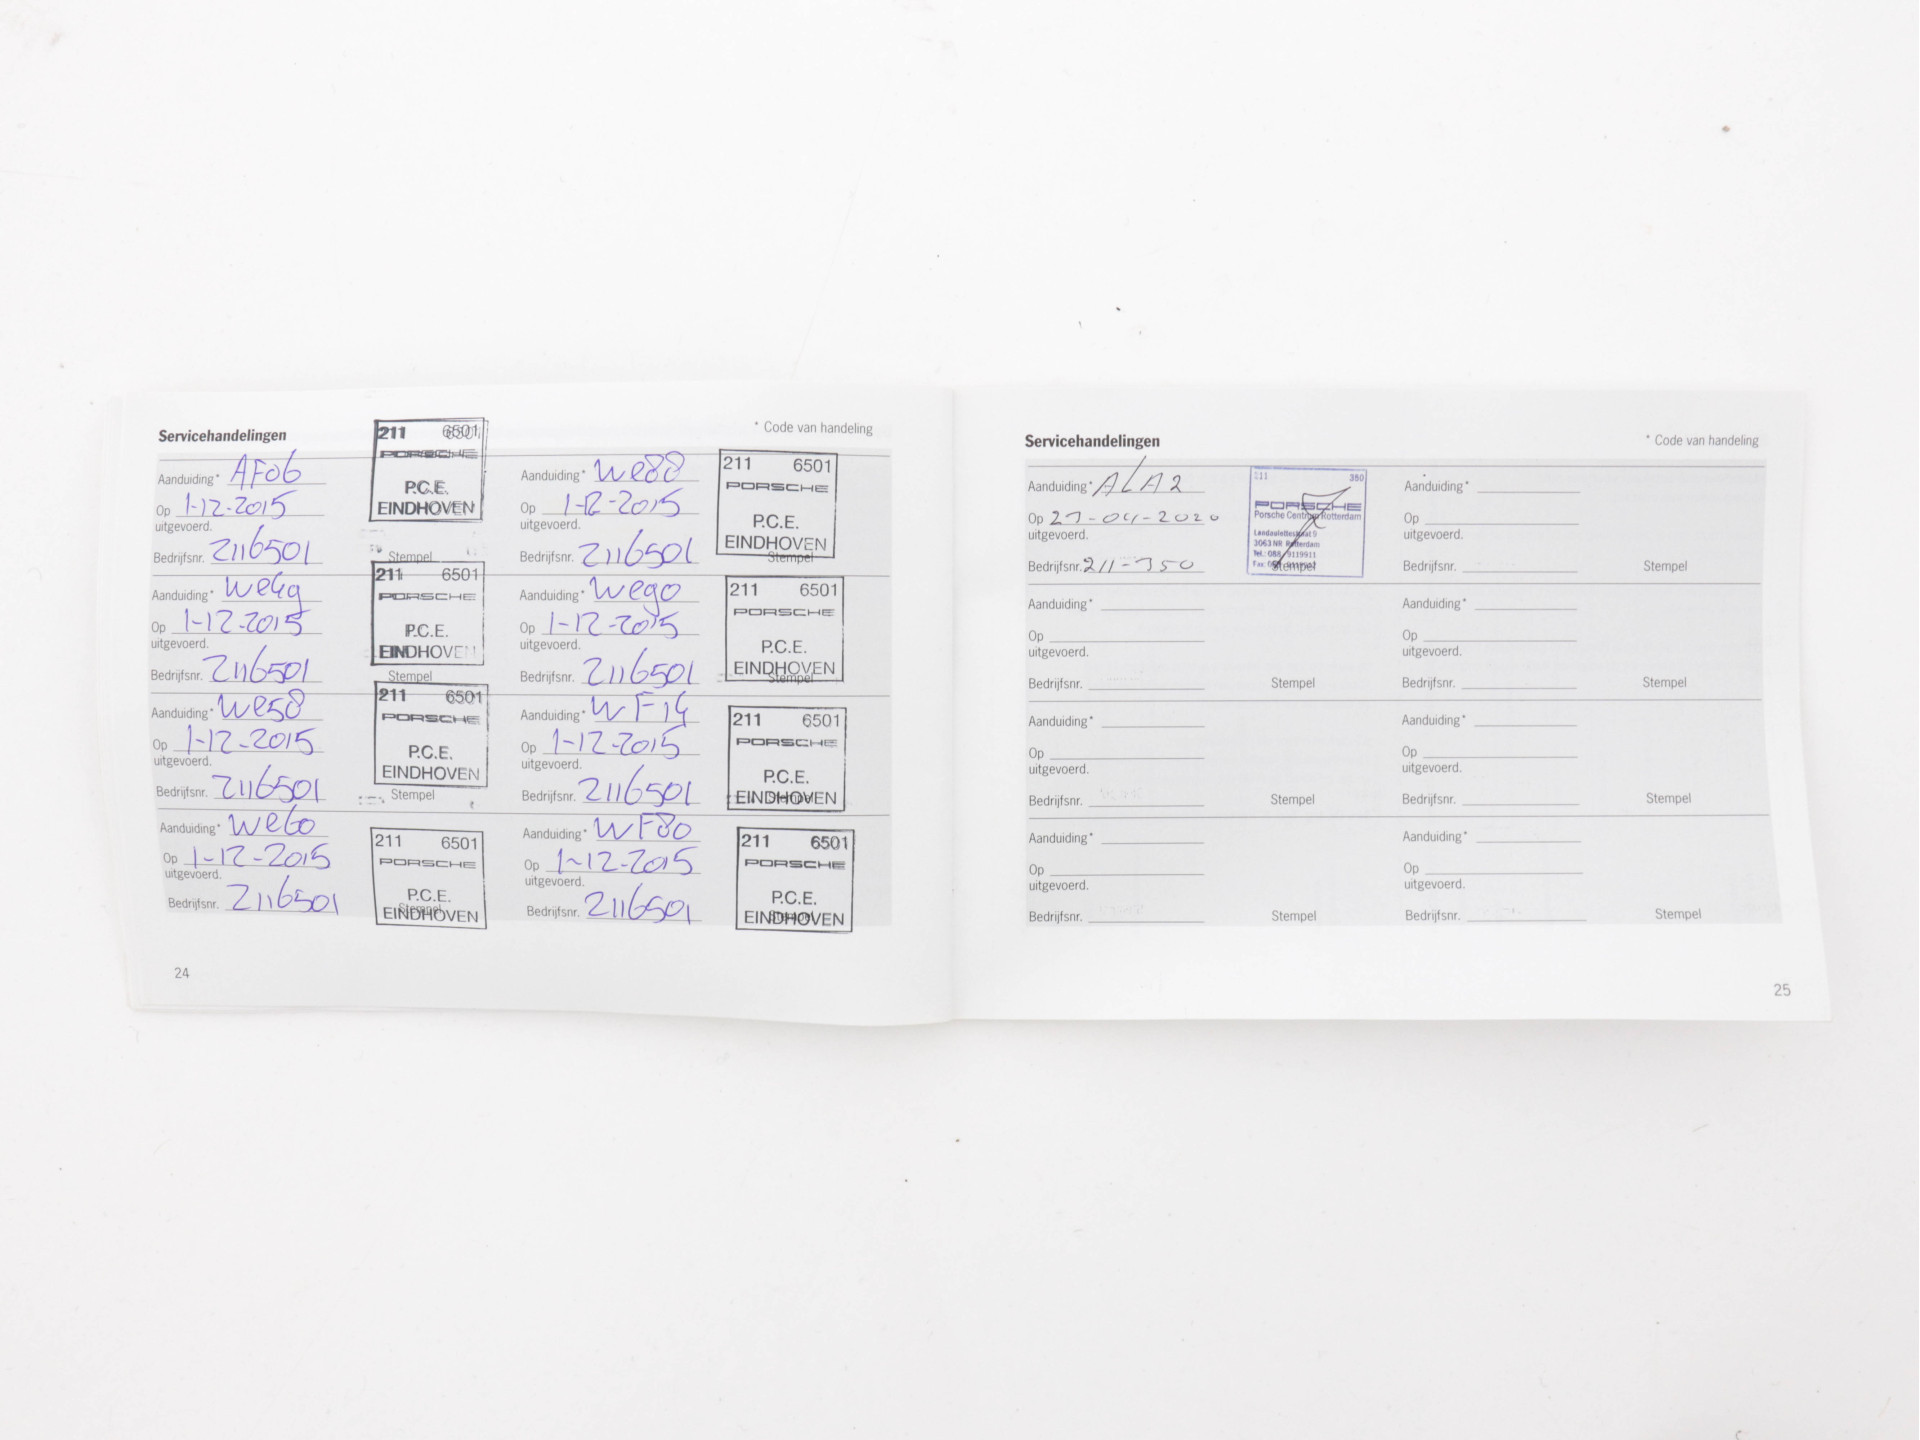 Servicehandelingen
* Code van handeling
Aanduiding* AF06
Op 1-12-2015
uitgevoerd.
Bedrijfsnr. 2116501
Stempel
211 6501
PORSCHE
P.C.E.
EINDHOVEN
Aanduiding* We88
Op 1-12-2015
uitgevoerd.
Bedrijfsnr. 2116501
Stempel
211 6501
PORSCHE
P.C.E.
EINDHOVEN
Aanduiding* We4g
Op 1-12-2015
uitgevoerd.
Bedrijfsnr. 2116501
Stempel
211 6501
PORSCHE
P.C.E.
EINDHOVEN
Aanduiding* Wego
Op 1-12-2015
uitgevoerd.
Bedrijfsnr. 2116501
Stempel
211 6501
PORSCHE
P.C.E.
EINDHOVEN
Aanduiding* We58
Op 1-12-2015
uitgevoerd.
Bedrijfsnr. 2116501
Stempel
211 6501
PORSCHE
P.C.E.
EINDHOVEN
Aanduiding* WF14
Op 1-12-2015
uitgevoerd.
Bedrijfsnr. 2116501
Stempel
211 6501
PORSCHE
P.C.E.
EINDHOVEN
Aanduiding* We60
Op 1-12-2015
uitgevoerd.
Bedrijfsnr. 2116501
Stempel
211 6501
PORSCHE
P.C.E.
EINDHOVEN
Aanduiding* WF80
Op 1-12-2015
uitgevoerd.
Bedrijfsnr. 2116501
Stempel
211 6501
PORSCHE
P.C.E.
EINDHOVEN
24
Servicehandelingen
* Code van handeling
Aanduiding* ALA2
Op 27-04-2020
uitgevoerd.
Bedrijfsnr. 211-350
Stempel
211 350
PORSCHE
Porsche Centrum Rotterdam
Landaulettestraat 9
3063 NR Rotterdam
Tel.: 088 - 9119911
Aanduiding*
Op
uitgevoerd.
Bedrijfsnr. Stempel
Aanduiding*
Op
uitgevoerd.
Bedrijfsnr. Stempel
Aanduiding*
Op
uitgevoerd.
Bedrijfsnr. Stempel
Aanduiding*
Op
uitgevoerd.
Bedrijfsnr. Stempel
Aanduiding*
Op
uitgevoerd.
Bedrijfsnr. Stempel
Aanduiding*
Op
uitgevoerd.
Bedrijfsnr. Stempel
Aanduiding*
Op
uitgevoerd.
Bedrijfsnr. Stempel
25